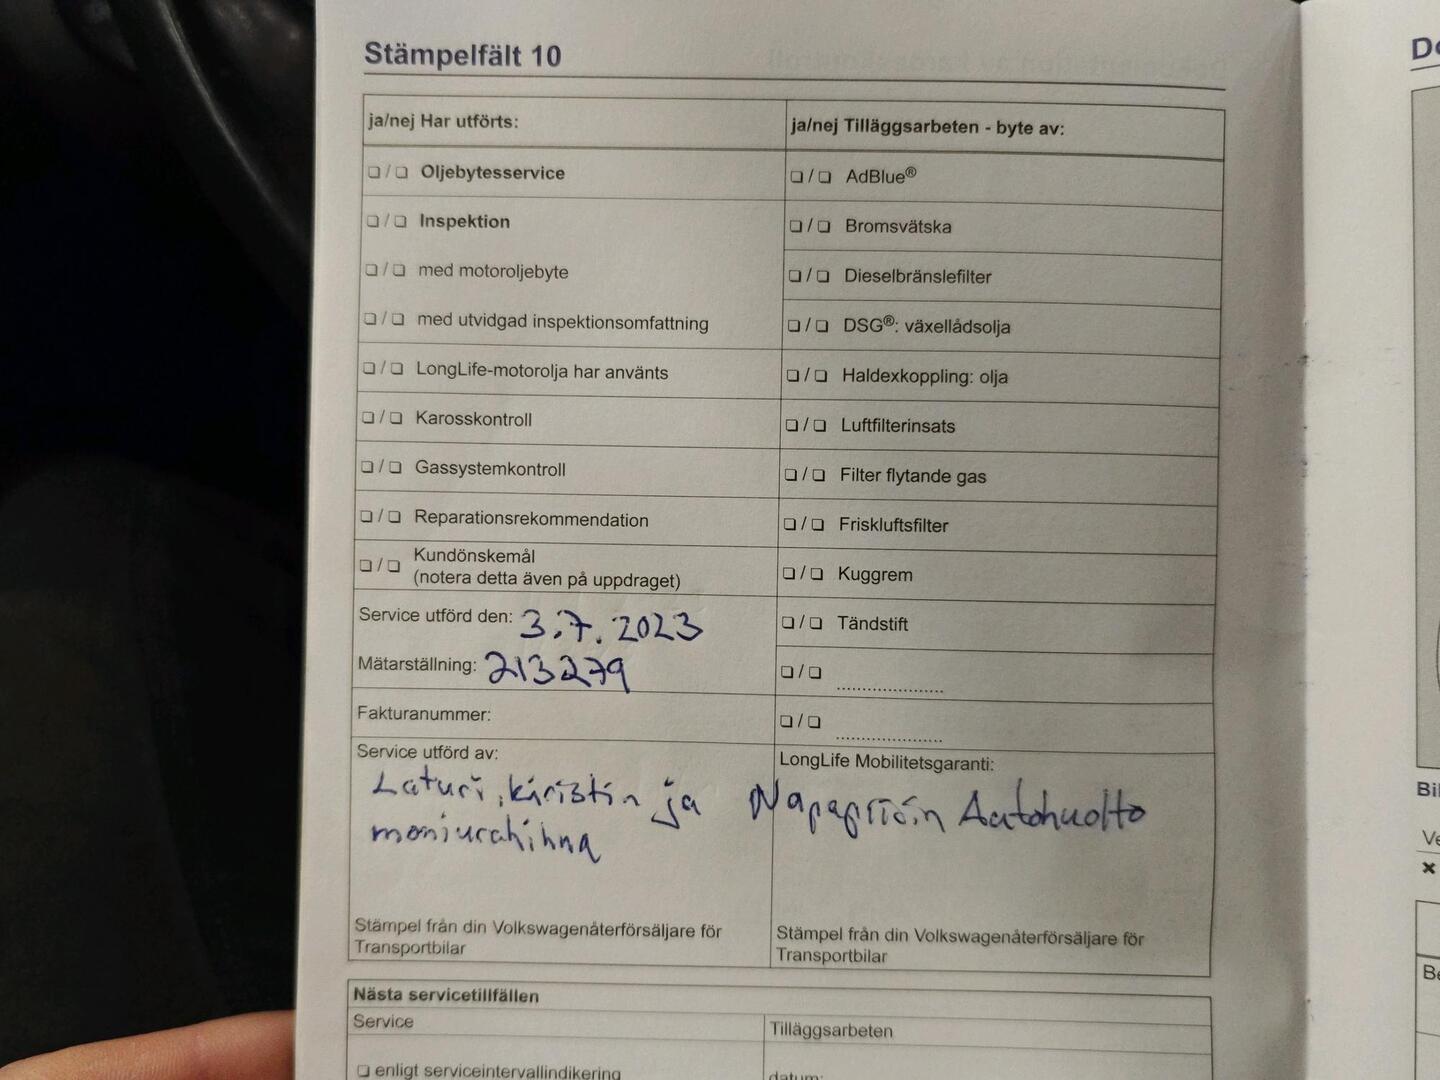 Stämpelfält 10
ja/nej Har utförts:
❏ / ❏ Oljebytesservice
❏ / ❏ Inspektion
❏ / ❏ med motoroljebyte
❏ / ❏ med utvidgad inspektionsomfattning
❏ / ❏ LongLife-motorolja har använts
❏ / ❏ Karosskontroll
❏ / ❏ Gassystemkontroll
❏ / ❏ Reparationsrekommendation
❏ / ❏ Kundönskemål
(notera detta även på uppdraget)
Service utförd den: 3.7.2023
Mätarställning: 213279
Fakturanummer:
Service utförd av:
Laturi, kiristin ja
moniurahihna
Stämpel från din Volkswagenåterförsäljare för
Transportbilar
ja/nej Tilläggsarbeten - byte av:
❏ / ❏ AdBlue®
❏ / ❏ Bromsvätska
❏ / ❏ Dieselbränslefilter
❏ / ❏ DSG®: växellådsolja
❏ / ❏ Haldexkoppling: olja
❏ / ❏ Luftfilterinsats
❏ / ❏ Filter flytande gas
❏ / ❏ Friskluftsfilter
❏ / ❏ Kuggrem
❏ / ❏ Tändstift
❏ / ❏ ......................
❏ / ❏ ......................
LongLife Mobilitetsgaranti:
Napapriiin Autohuolto
Stämpel från din Volkswagenåterförsäljare för
Transportbilar
Nästa servicetillfällen
Service
❏ enligt serviceintervallindikering
Tilläggsarbeten
datum: